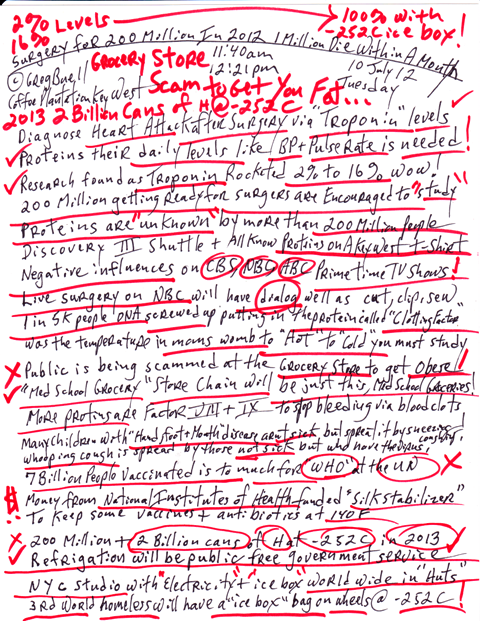 2% Levels → 100% with
16% -252C ice box!
Surgery for 200 Million In 2012 1 Million Die Within A Month
Grocery Store 11:40am 10 July 12
© Greg Buell 12:21pm Tuesday
Coffee Plantation Key West Scam to Get You Fat...
2013 2 Billion Cans of H@-252C
Diagnose Heart Attack after Surgery via "Troponin" levels
Proteins their daily levels like BP + Pulse Rate is needed!
Research found as Troponin Rocketed 2% to 16% wow!
200 Million getting Ready for surgers are Encouraged to "study
Proteins are "unknown" by more than 200 Million People
Discovery III Shuttle + All Know Proteins on A Key West T-Shirt
Negative influences on CBS, NBC, ABC Prime time TV shows!
Live surgery on NBC will have dialog well as cut, clip, sew
1 in 5K people DNA screwed up putting in the protein called "Clotting Factor"
was the temperature in moms womb to "Hot" to "Cold" you must study
Public is being scammed at the Grocery Store to get Obese!
"Med School Grocery" Store Chain will be just this, Med School Groceries!
More protins are Factor VIII + IX to stop bleeding via blood clots
Many children with "Hand, foot + Mouth disease arn't sick, but spread it by sneezing
whooping cough is spread by those not sick but who have the virus! coughing!
7 Billion People Vaccinated is to much for "WHO" at the UN
Money from National Institutes of Health funded "Silk Stabilizer"
To keep some vaccines + antibiotics at 140 F
200 Million + 2 Billion cans of H at -252C in 2013
Refrigation will be public free government service
NYC studio with "Electricity" + "ice box" world wide in "Huts"
3rd World homeless will have a "ice box" bag on wheels @ -252C!